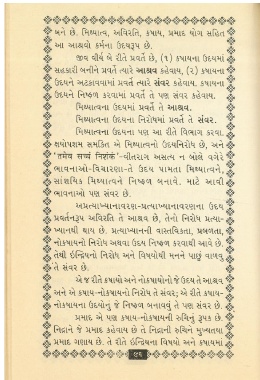 બને છે. મિથ્યાત્વ, અવિરતિ, કષાય, પ્રમાદ યોગ સહિત
આ આશ્રવો કર્મના ઉદયરૂપ છે.
જીવ વીર્ય બે રીતે પ્રવર્તે છે, (૧) કષાયના ઉદયમાં
સહકારી બનીને પ્રવર્તે ત્યારે આશ્રવ કહેવાય, (૨) કષાયના
ઉદયને અટકાવવામાં પ્રવર્તે ત્યારે સંવર કહેવાય. કષાયના
ઉદયને નિષ્ફળ કરવામાં પ્રવર્તે તે પણ સંવર કહેવાય.
મિથ્યાત્વના ઉદયમાં પ્રવર્તે તે આશ્રવ.
મિથ્યાત્વના ઉદયના નિરોધમાં પ્રવર્તે તે સંવર.
મિથ્યાત્વના ઉદયના પણ આ રીતે વિભાગ કરવા.
ક્ષયોપશમ સમકિત એ મિથ્યાત્વનો ઉદયનિરોધ છે, અને
'તમેવ સચ્ચં નિશંકં'-વીતરાગ અસત્ય ન બોલે વગેરે
ભાવનાઓ-વિચારણા-તે ઉદય પામતા મિથ્યાત્વને,
સાંશયિક મિથ્યાત્વને નિષ્ફળ બનાવે. માટે આવી
ભાવનાઓ પણ સંવર છે.
અપ્રત્યાખ્યાનાવરણ-પ્રત્યાખ્યાનાવરણના ઉદય
પ્રવર્તનરૂપ અવિરતિ તે આશ્રવ છે, તેનો નિરોધ પ્રત્યા-
ખ્યાનથી થાય છે. પ્રત્યાખ્યાનની વાસ્તવિકતા, પ્રબળતા,
નોકષાયનો નિરોધ અથવા ઉદય નિષ્ફળ કરવાથી આવે છે.
તેથી ઇન્દ્રિયનો નિરોધ અને વિષયોથી મનને પાછું વાળવું
તે સંવર છે.
એ જ રીતે કષાયો અને નોકષાયોનો જે ઉદય તે આશ્રવ
અને એ કષાય-નોકષાયનો નિરોધ તે સંવર; એ રીતે કષાય-
નોકષાયના ઉદયોનું જે નિષ્ફળ બનાવવું તે પણ સંવર છે.
પ્રમાદ એ પણ કષાય-નોકષાયની રુચિનું રૂપક છે.
નિદ્રાને જે પ્રમાદ કહેવાય છે તે નિદ્રાની રુચિને મુખ્યતયા
પ્રમાદ ગણાય છે. તે રીતે ઇન્દ્રિયના વિષયો અને કષાયમાં